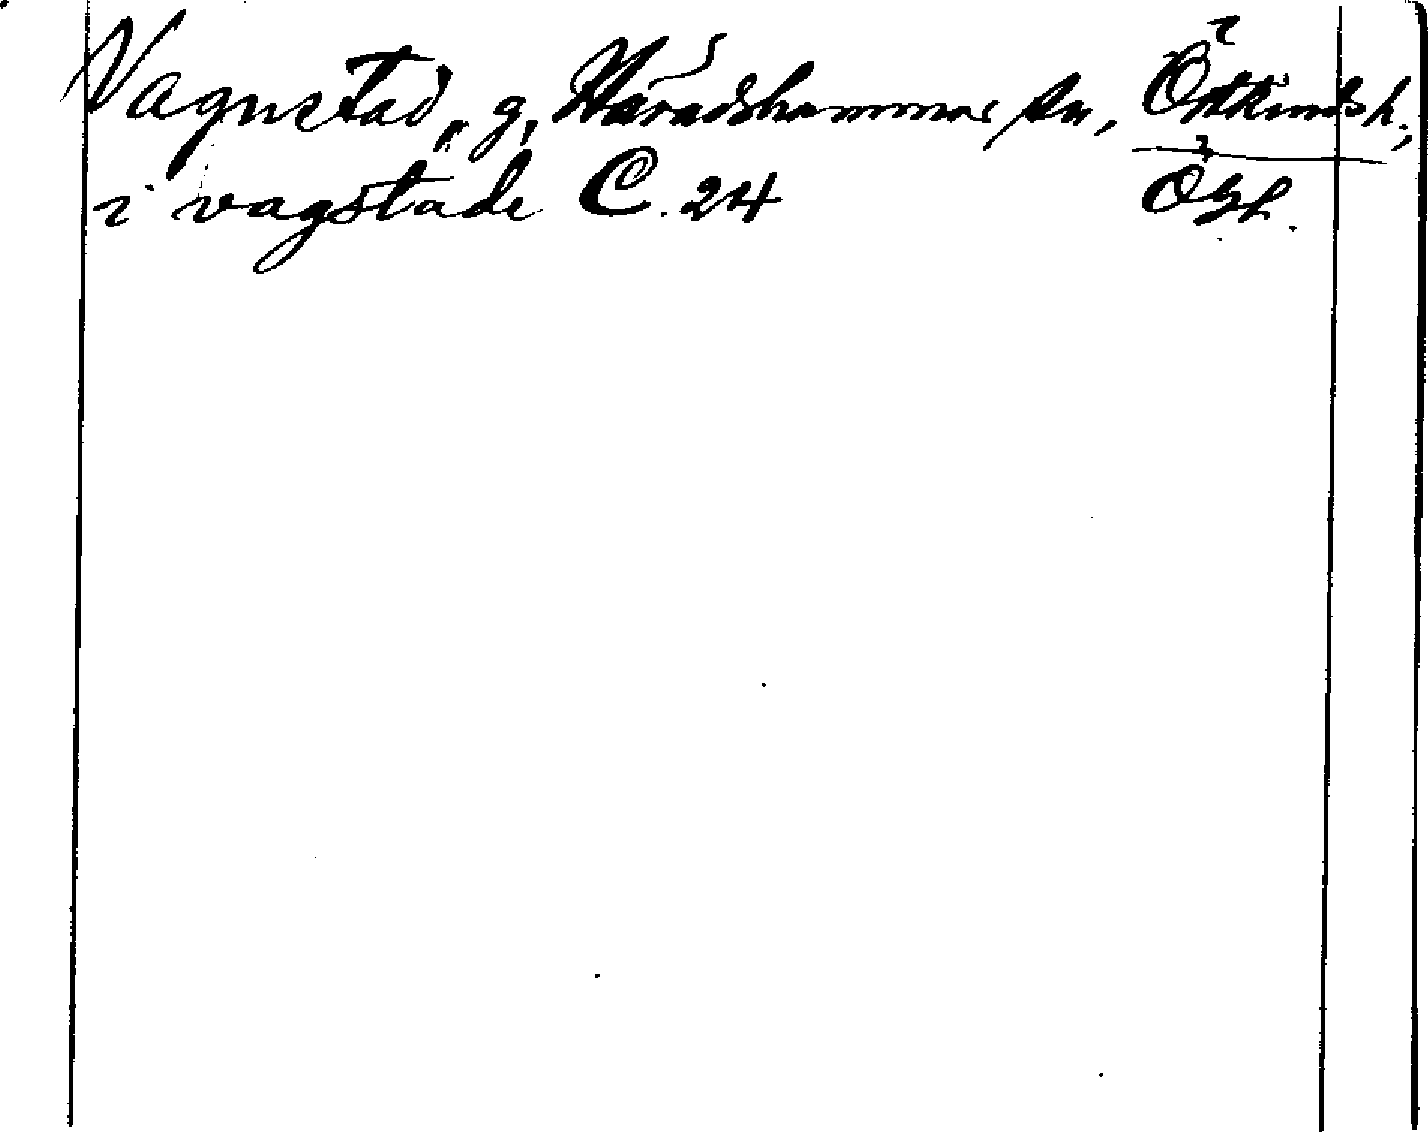 Vagnstad, g, Häradshammar sn, Östkinds h.,
i vagstade C. 24 Ögl.